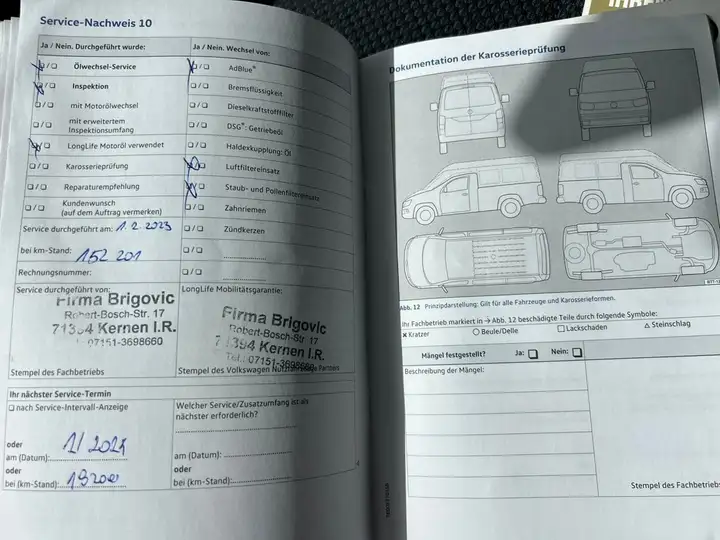 Service-Nachweis 10
Ja / Nein. Durchgeführt wurde:
Ölwechsel-Service
Inspektion
mit Motorölwechsel
mit erweitertem
Inspektionsumfang
LongLife Motoröl verwendet
Karosserieprüfung
Reparaturempfehlung
Kundenwunsch
(auf dem Auftrag vermerken)
Service durchgeführt am: 1. 2. 2023
bei km-Stand: 152 201
Rechnungsnummer:
Service durchgeführt von:
Firma Brigovic
Robert-Bosch-Str. 17
71394 Kernen I.R.
07151-3698660
Stempel des Fachbetriebs
Ja / Nein. Wechsel von:
AdBlue®
Bremsflüssigkeit
Dieselkraftstofffilter
DSG®: Getriebeöl
Haldexkupplung: Öl
Luftfiltereinsatz
Staub- und Pollenfiltereinsatz
Zahnriemen
Zündkerzen
LongLife Mobilitätsgarantie:
Firma Brigovic
Robert-Bosch-Str. 17
71394 Kernen I.R.
Tel.: 07151-3698660
Stempel des Volkswagen Nutzfahrzeuge Partners
Ihr nächster Service-Termin
nach Service-Intervall-Anzeige
oder
am (Datum): 1/2024
oder
bei (km-Stand):
Welcher Service/Zusatzumfang ist als
nächster erforderlich?
am (Datum):
oder
bei (km-Stand):
Dokumentation der Karosserieprüfung
Abb. 12 Prinzipdarstellung: Gilt für alle Fahrzeuge und Karosserieformen.
Ihr Fachbetrieb markiert in → Abb. 12 beschädigte Teile durch folgende Symbole:
Kratzer
Beule/Delle
Lackschaden
Steinschlag
Mängel festgestellt? Ja: Nein:
Beschreibung der Mängel:
Stempel des Fachbetriebs